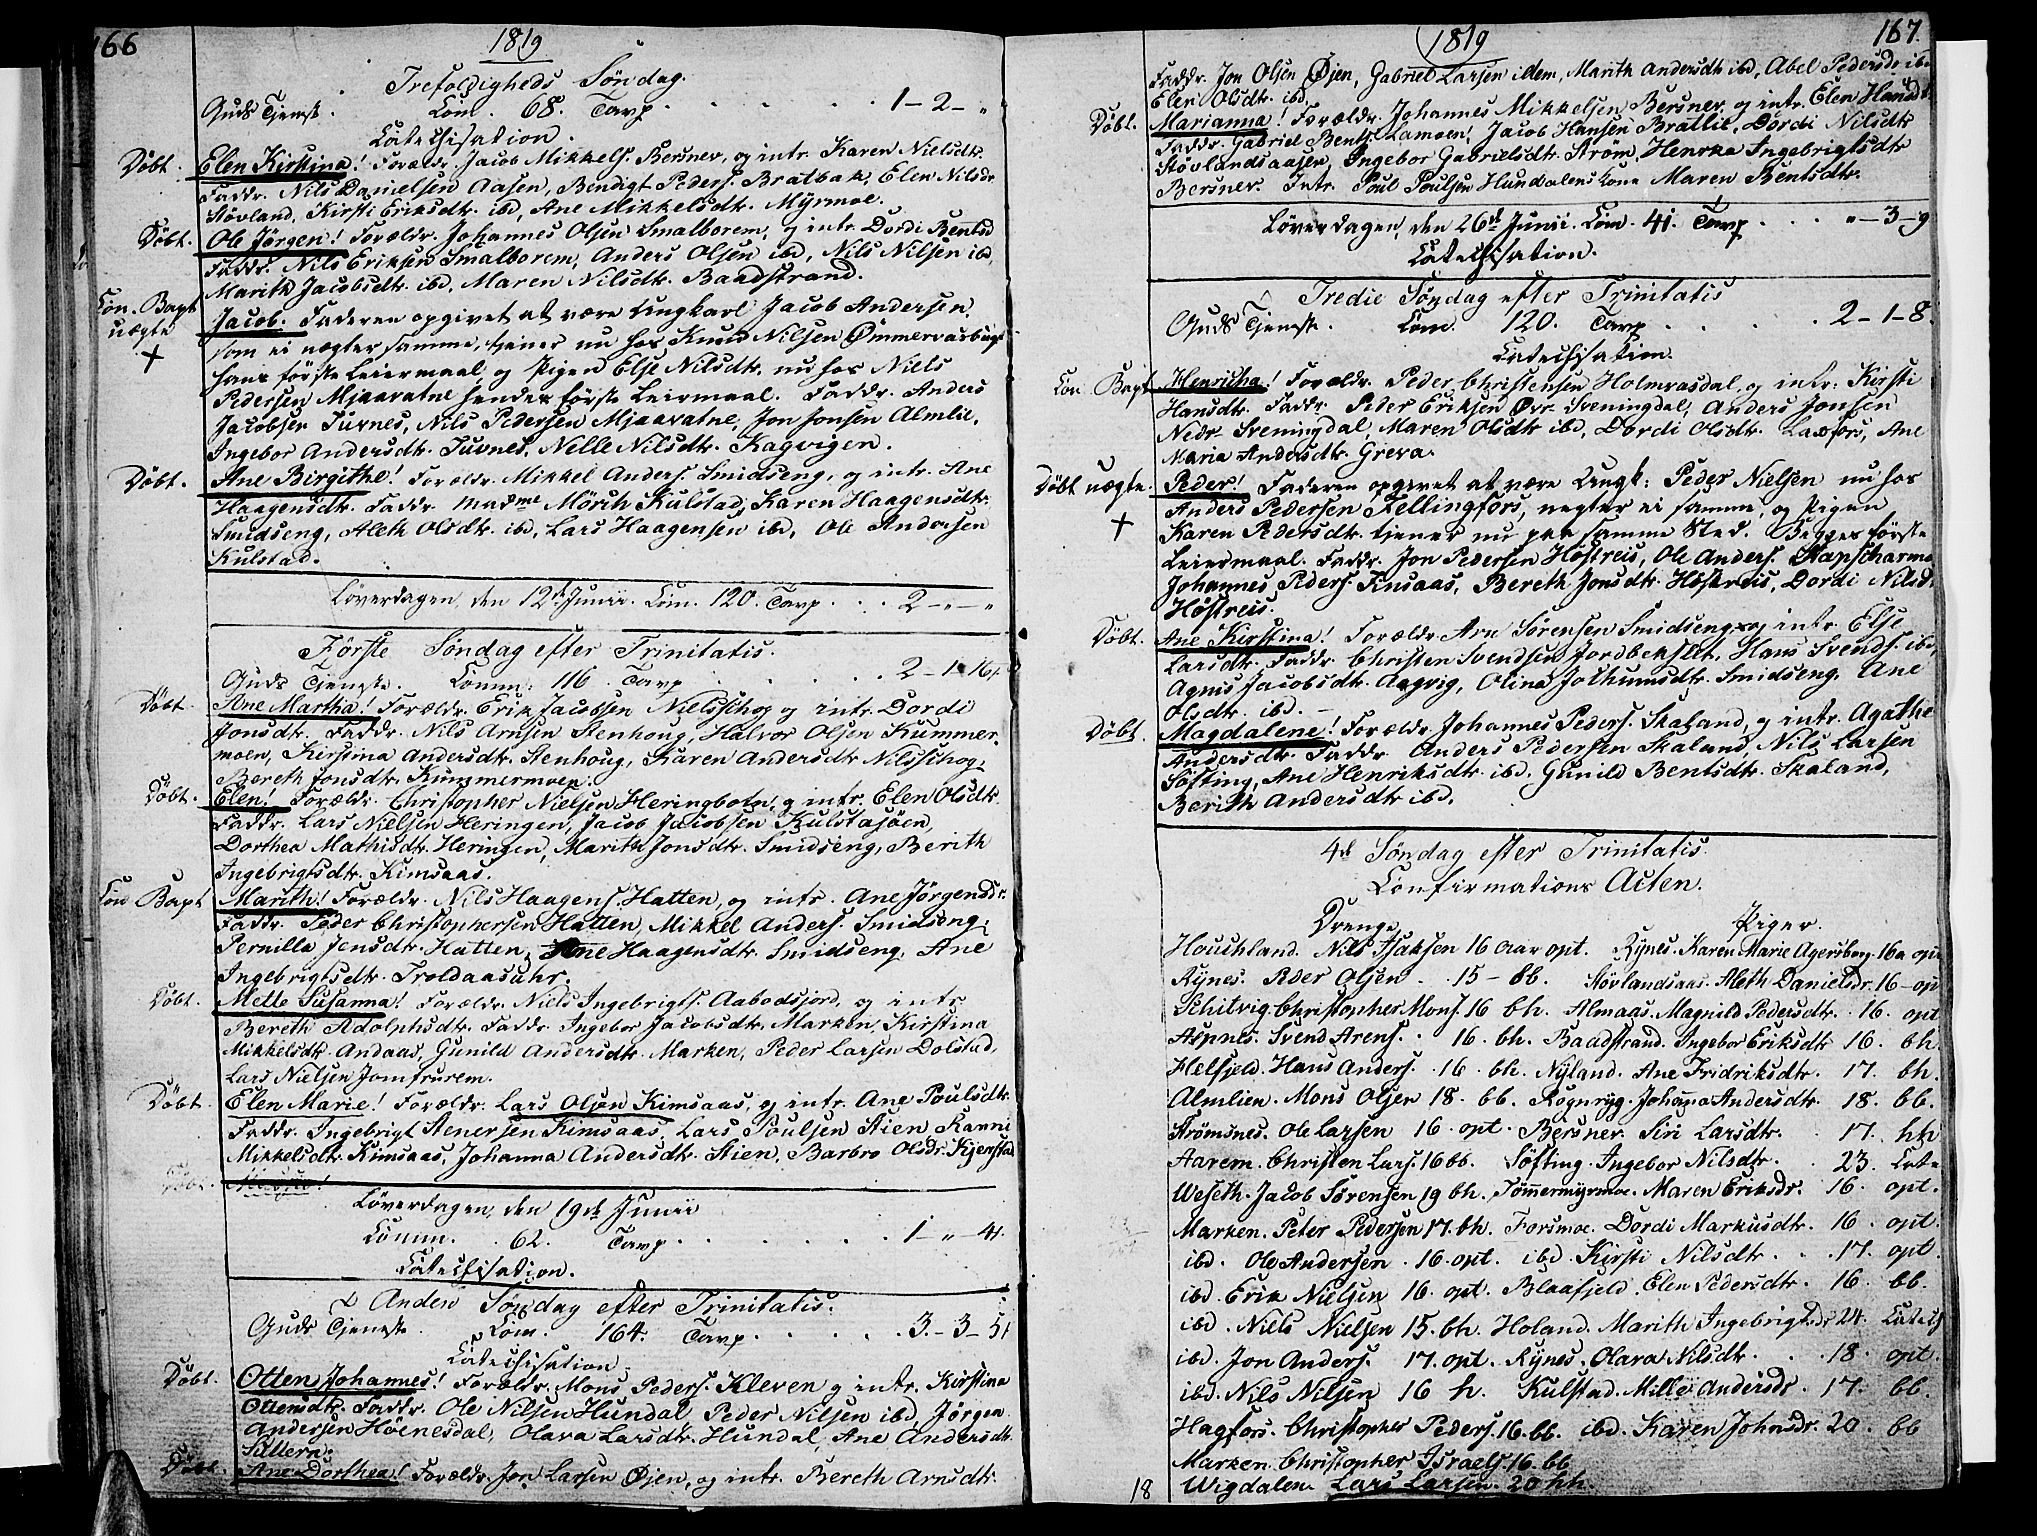 166
1819
Trefoldigheds Søndag.
Guds Tjenest. Com. 68. Tavp. . . . . . 1 - 2 - "
Catechisation.
Døbt. Elen Kirstina! Forældr. Jacob Mikkels. Bersner, og intr. Karen Nielsdtr.
Faddr. Nils Danielsen Aasen, Bendigt Peders. Bratbak, Elen Nilsdr.
Stövland, Kirsti Eriksdtr. ibd, Ane Mikkelsdtr. Myrmoe.
Døbt. Ole Jörgen! Forældr. Johannes Olsen Smalborem, og intr. Dordi Bentsd
Faddr. Nils Eriksen Smalborem, Anders Olsen ibd, Nils Nilsen ibd,
Marith Jacobsdtr. ibd, Maren Nilsdtr. Baadstrand.
Con. Bapt Jacob. Faderen opgivet at være Ungkarl Jacob Andersen
uægte som ei nægter samme, tjener nu hos Knud Nilsen Ömmervasbugt
+ hans første Leiermaal og Pigen Else Nilsdtr. nu hos Niels
Pedersen Mjaavatne hendes første Leiermaal. Faddr. Anders
Jacobsen Tuvnes, Nils Pedersen Mjaavatne, Jon Jonsen Almlie,
Ingebor Andersdtr. Tuvnes, Nelle Nilsdtr. Kagvigen.
Døbt. Ane Birgithe! Forældr. Mikkel Anders. Smidseng, og intr. Ane
Haagensdtr. Faddr. Madme Mörch Kulstad, Karen Haagensdtr.
Smidseng, Aleth Olsdtr. ibd, Lars Haagensen ibd, Ole Andersen
Kulstad.
Løverdagen, den 12te Junii. Com. 120. Tavp. . . 2 - " - "
Første Søndag efter Trinitatis.
Guds Tjeneste. Comm. 116. Tavp . . . . . . 2 - 1 - 16.
Døbt. Ane Martha! Forældr. Erik Jacobsen Nielsskog og intr. Dordi
Jonsdtr. Faddr. Nils Arnsen Stenhoug, Halvor Olsen Kummer-
moen, Kirstina Andersdtr. Stenhoug, Karen Andersdtr. Nilsskog,
Bereth Jonsdtr. Kummermoen.
Døbt. Elen! Forældr. Christopher Nielsen Heringbotn, og intr. Elen Olsdtr.
Faddr. Lars Nielsen Heringen, Jacob Jacobsen Kulstasjöen,
Dorthea Mathisdtr. Heringen, Marith Jonsdtr. Smidseng, Berith
Ingebrigtsdtr. Kimsaas.
Con Bapt Marith! Forældr. Nils Haagens. Hatten, og intr. Ane Jørgensdr.
Faddr. Peder Christophersen Hatten, Mikkel Anders. Smidseng,
Pernille Jensdtr. Hatten, Ane Haagensdtr. Smidseng, Ane
Ingebrigtsdtr. Troldaasuhr.
Døbt. Mette Susanna! Forældr. Niels Ingebrigts. Aabodsjord, og intr.
Bereth Adolphsdtr. Faddr. Ingebor Jacobsdtr. Marken, Kirstina
Mikkelsdtr. Andaas, Gunild Andersdtr. Marken, Peder Larsen Dolstad,
Lars Nielsen Jomfrurem.
Døbt. Elen Marie! Forældr. Lars Olsen Kimsaas, og intr. Ane Poulsdtr.
Faddr. Ingebrigt Stenersen Kimsaas, Lars Poulsen Stien, Karni
Mikkelsdtr. Kimsaas, Johanna Andersdtr. Stien, Barbro Olsdr. Kjerstad
Løverdagen, den 19de Junii
Comm. 62. Tavp. . . . . . . 1 - " - 4.
Catechisation.
Anden Søndag efter Trinitatis.
Guds Tjeneste. Com. 164. Tavp. . . . . 3 - 3 - 5
Catechisation.
Døbt. Otten Johannes! Forældr. Mons Peders. Kleven og intr. Kirstina
Ottensdtr. Faddr. Ole Nilsen Hundal, Peder Nilsen ibd, Jørgen
Andersen Höenesdal, Olava Larsdtr. Hundal, Ane Andersdtr.
Sættern.
Døbt. Ane Dorthea! Forældr. Jon Larsen Øjen, og intr. Bereth Arnsdtr.
1819
167
Faddr. Jon Olsen Øjen, Gabriel Larsen idem, Marith Andersdtr ibd, Abel Pedersdr ibd
Elen Olsdtr. ibd.
Døbt. Marianna! Forældr. Johannes Mikkelsen Bersner, og intr. Elen Hansdt.
Faddr. Gabriel Bents. Lamoen, Jacob Hansen Bratlie, Dordi Nilsdtr
Stövlandsaasen, Ingebor Gabrielsdtr. Ström, Henrka Ingebrigtsdtr
Bersner. Intr. Poul Poulsen Hundalens Kone Maren Bentsdtr.
Løverdagen, den 26de Junii. Com. 41. Tavp . . . . " - 3 - 9
Catechisation.
Tredie Søndag efter Trinitatis
Guds Tjeneste. Com. 120. Tavp . . . . 2 - 1 - 8.
Catechisation.
Con Bapt Henricha! Forældr. Peder Christensen Holmvasdal, og intr. Kirsti
Hansdtr. Faddr. Peder Eriksen Øvr. Sveningdal, Anders Jonsen
Nedr. Sveningdal, Maren Olsdtr ibd, Dordi Olsdtr. Laxfors, Ane
Maria Andersdtr. Greva.
Døbt uægte. Peder! Faderen opgivet at være Ungk: Peder Nielsen nu hos
+ Anders Pedersen Fellingfors, negter ei samme, og Pigen
Karen Pedersdtr. tjener nu paa samme Sted. Begges første
Leiermaal. Faddr. Jon Pedersen Høstreis, Ole Anders. Stapscharmo
Johannes Peders. Finsaas, Bereth Jonsdtr. Høstreis, Dordi Nilsdt.
Høstreis.
Døbt. Ane Kirstina! Forældr. Arn Sørensen Smidseng, og intr. Else
Larsdtr. Faddr. Christen Svendsen Jordbekslet, Hans Svends. ibd,
Agnis Jacobsdtr. Aagvig, Olina Jochumsdtr. Smidseng, Ane
Olsdtr. ibd.
Døbt. Magdalene! Forældr. Johannes Peders. Skaland, og intr. Agathe
Andersdtr. Faddr. Anders Pedersen Skaland, Nils Larsen
Söfting, Ane Henriksdtr. ibd, Gunild Bentsdtr. Skaland,
Berith Andersdtr ibd.
4de Søndag efter Trinitatis.
Confirmations Acten.
Drenge. Piger.
Houskland. Nils Isaksen 16 aar opt. Rynes. Karen Marie Agersborg 16 a opt
Rynes. Peder Olsen. 15 - bb. Stövlandsaas. Aleth Danielsdr. 16 - opt
Schilvig. Christopher Mons. 16 bh. Almaas. Magnild Pedersdtr. 16. opt
Aspnes. Svend Arens. 16. bh. Baadstrand. Ingebor Eriksdtr 16. bh.
Helfjeld. Hans Anders. 16. bh. Nyland. Ane Fridriksdtr. 17. bh.
Almlien. Mons Olsen 18. bb. Rognryg. Johana Andersdtr. 18. bb.
Strömsnes. Ole Larsen 16. opt. Bersner. Siri Larsdtr. 17. hh
Aarem. Christen Lars. 16 bb. Söfting. Ingebor Nilsdtr. 23. Cate
Weseth. Jacob Sørensen 19 bh. Tömmermyrmoe. Maren Eriksdr. 16. opt.
Marken. Peter Pedersen 17. bh. Forsmoe. Dordi Markusdtr. 16. opt.
ibd. Ole Andersen. 16. opt. ibd Kirsti Nilsdtr. . . 17. opt
ibd Erik Nielsen 16. opt. Blaafjeld. Elen Pedersdtr. 16. bb.
ibd. Niels Nielsen 15. bh. Holand. Marith Ingebrigtsdr 24. Catech
ibd. Jon Anders. 17. opt. Rynes. Olava Nilsdtr. . 18. opt.
ibd. Nils Nilsen 16 h. Kulstad. Mille Andersdr. 17. bb.
Hagfors. Christopher Peders. 16. bb. ibd. Karen Johnsdr. 20. bb
Marken. Christopher Israels 16. bb
18 Wigdalen. Lars Larsen. 20 hh.